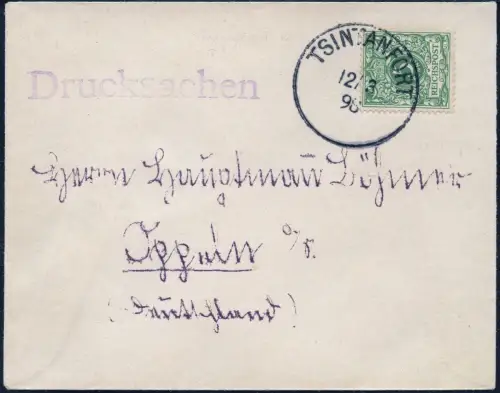 Drucksachen
TSINTANFORT
12/3
98
REICHSPOST
Herrn Hauptmann Böhmer
Oppeln o/S.
(Deutschland)